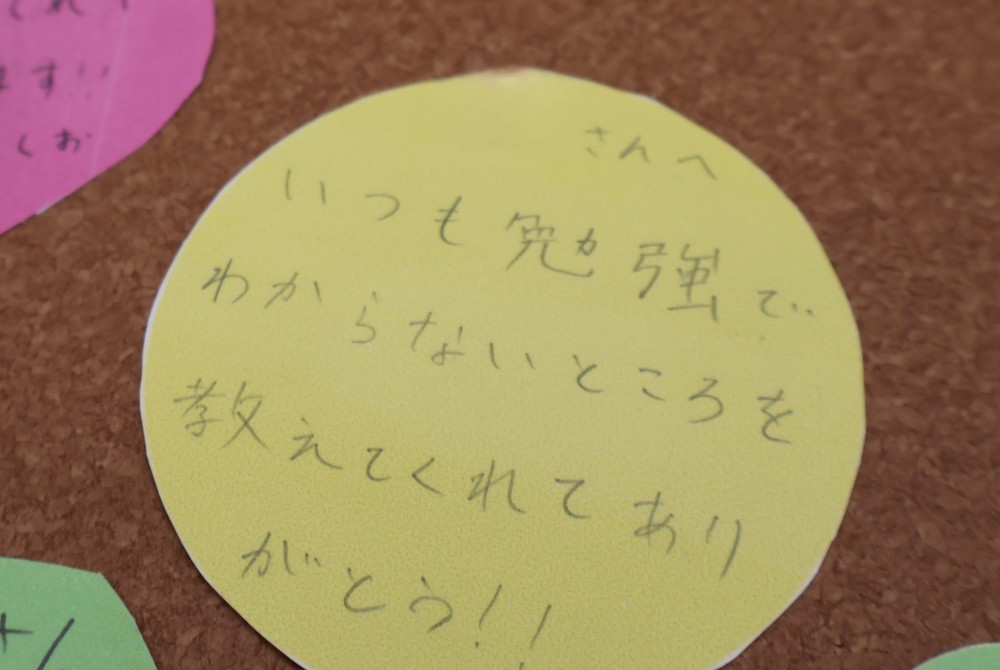 ます!!
くお
さんへ
いつも勉強で
わからないところを
教えてくれてあり
がとう!!